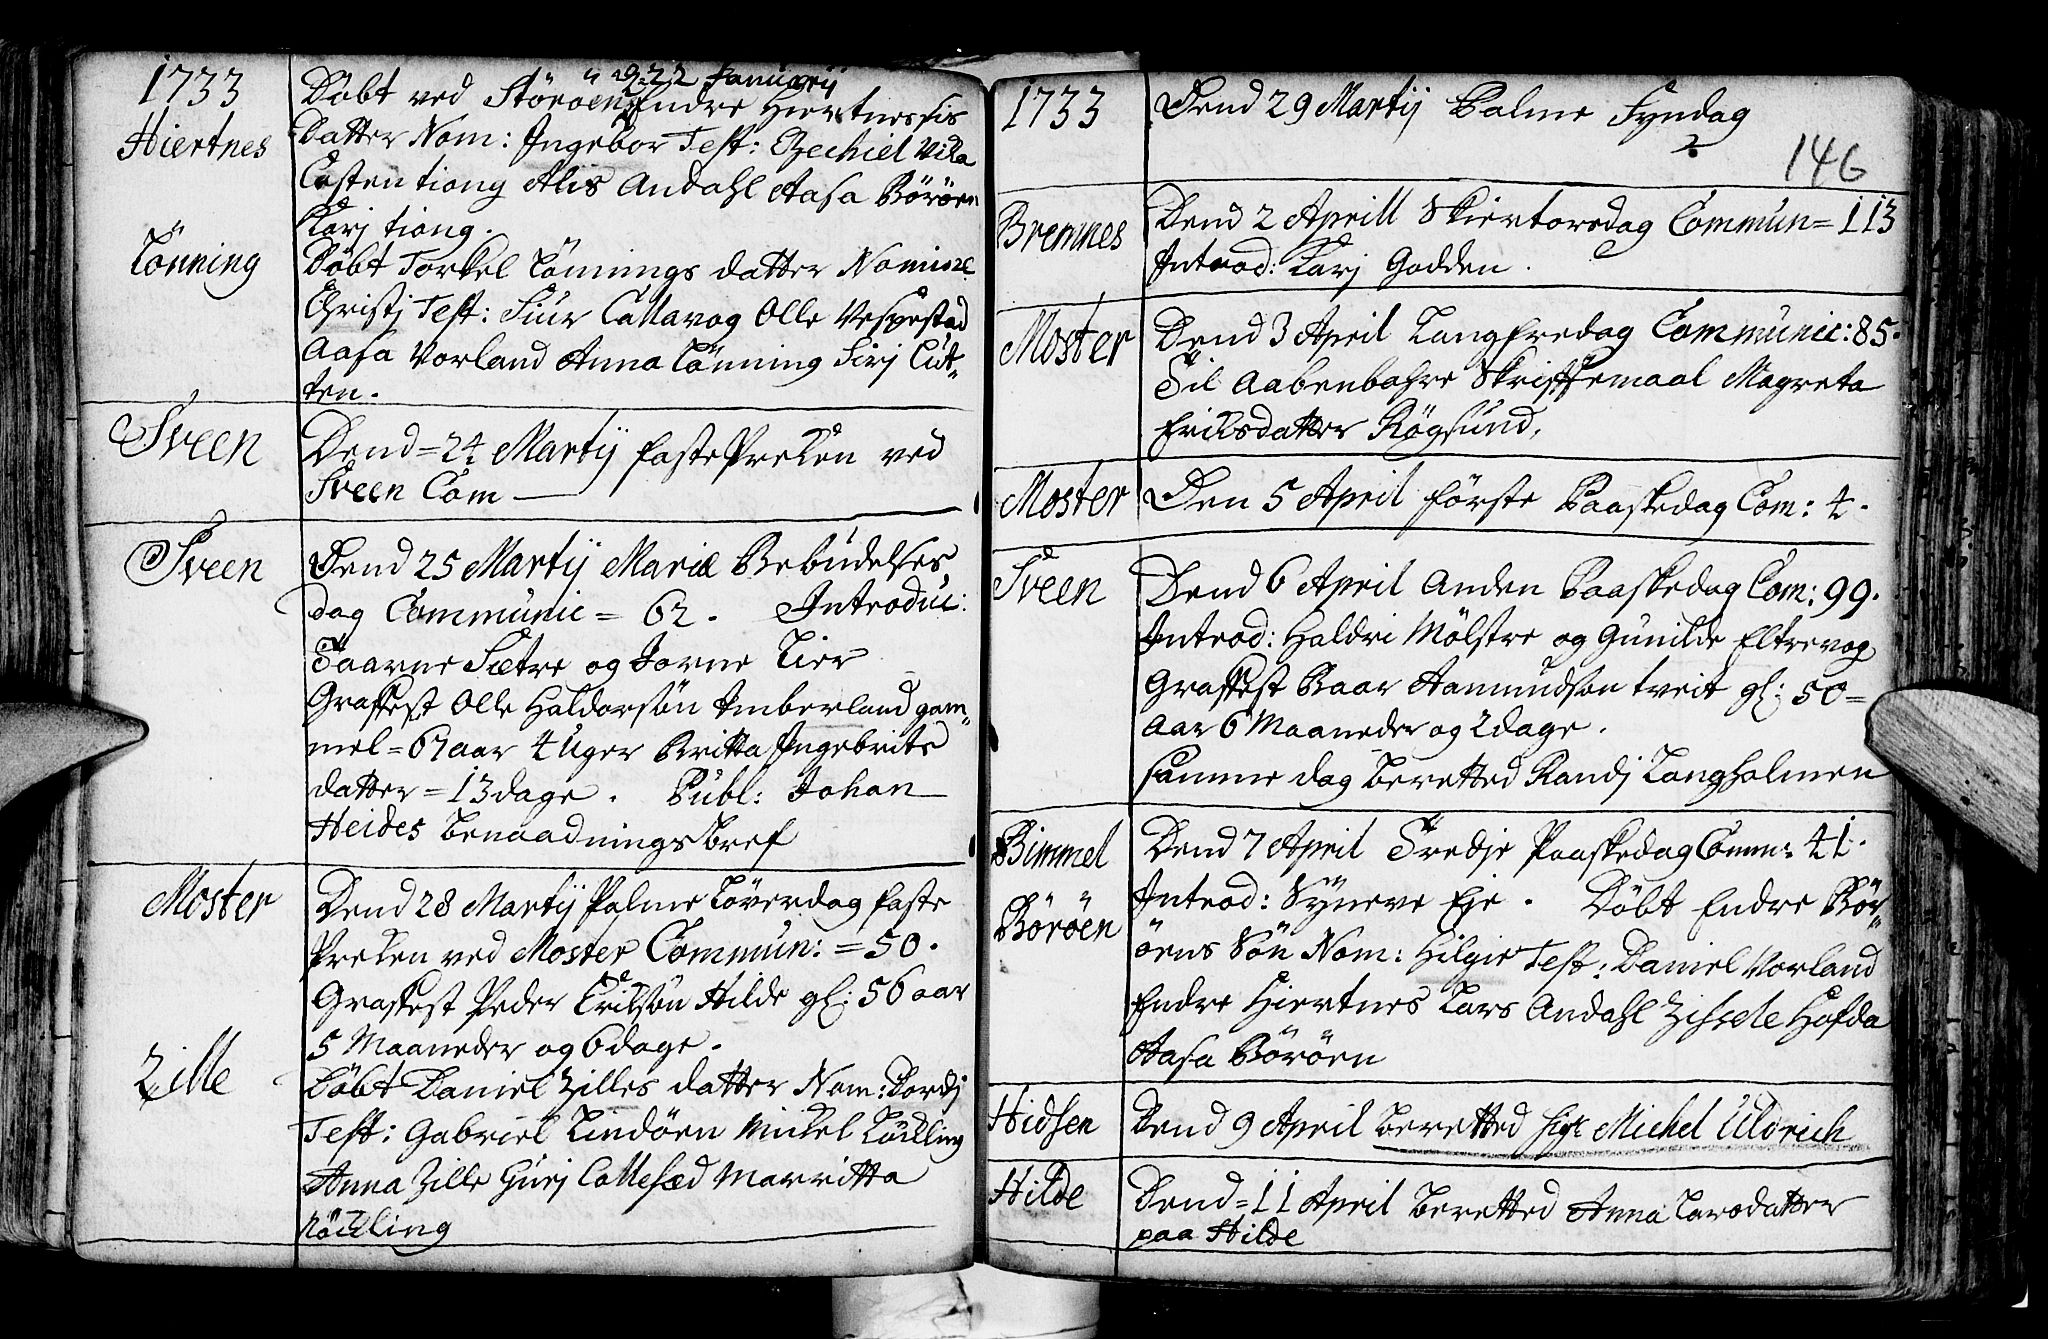 1733
Hiertnes
Döbt ved Störöen d. 22 Januarij Endre Hiertnessis
Datter Nom: Ingebor Test: Ezechiel Vika
Costen tiong Alis Andahl Aasa Böröen
Karj tiong.
Lönning
Döbt Torkel Lönnings datter Nomine
Christj Test: Siur Callavog Olle Vespestad
Aasa Vorland Anna Lönning Sirj Lut„
ten.
Sveen
Dend = 24 Martij faste Preken ved
Sveen Com —
Sveen
Dend 25 Martij Mariæ Bebudelses
dag Communic = 62. Introduc:
Taarne Sætre og Jorne Lier
Graffest Olle Haldorsön Imberland gam„
mel = 67 aar 4 Uger Britta Ingebrits
datter = 13 dage. Publ: Johan
Heides benaadnings bref
Moster
Dend 28 Martij Palme Löverdag faste
Preken ved Moster Commun: = 50.
Graffest Peder Erilsön Hilde gl: 56 aar
5 Maaneder og 6 dage.
Zille
Döbt Daniel Zilles datter Nom: Dordj
Test: Gabriel Lindöen Mikel
Anna Zille Gurj Callesæd Marritta

1733
Dend 29 Martij Palme Syndag
146
Bremnes
Dend 2 Aprill Skiertorsdag Commun = 113
Introd: Karj Godden.
Moster
Dend 3 April Langfredag Communic: 85.
Til Aabenbahre Skrifftemaal Magreta
Eriksdatter Rögsund.
Moster
Den 5 April förste Paaskedag Com: 4.
Sveen
Dend 6 April Anden Paaskedag Com: 99.
Introd: Haldri Mölstre og Gunilde Eltrevog
Graffest Baar Aamundsen tveit gl: 50 =
aar 6 Maaneder og 2 dage.
samme dag beretted Randj Langholmen
Bimmel
Dend 7 April Tredje Paaskedag Comm: 41.
Böröen
Introd: Syneve Eje. Döbt Endre Bör„
öens Sön Nom: Hilgie Test: Daniel Vorland
Endre Hiertnes Lars Andahl Zissele Hofda
Aasa Böröen
Hidsen
Dend 9 April beretted Sigr Michel Uldrich
Hilde
Dend = 11 April beretted Anna Larsdatter
paa Hilde